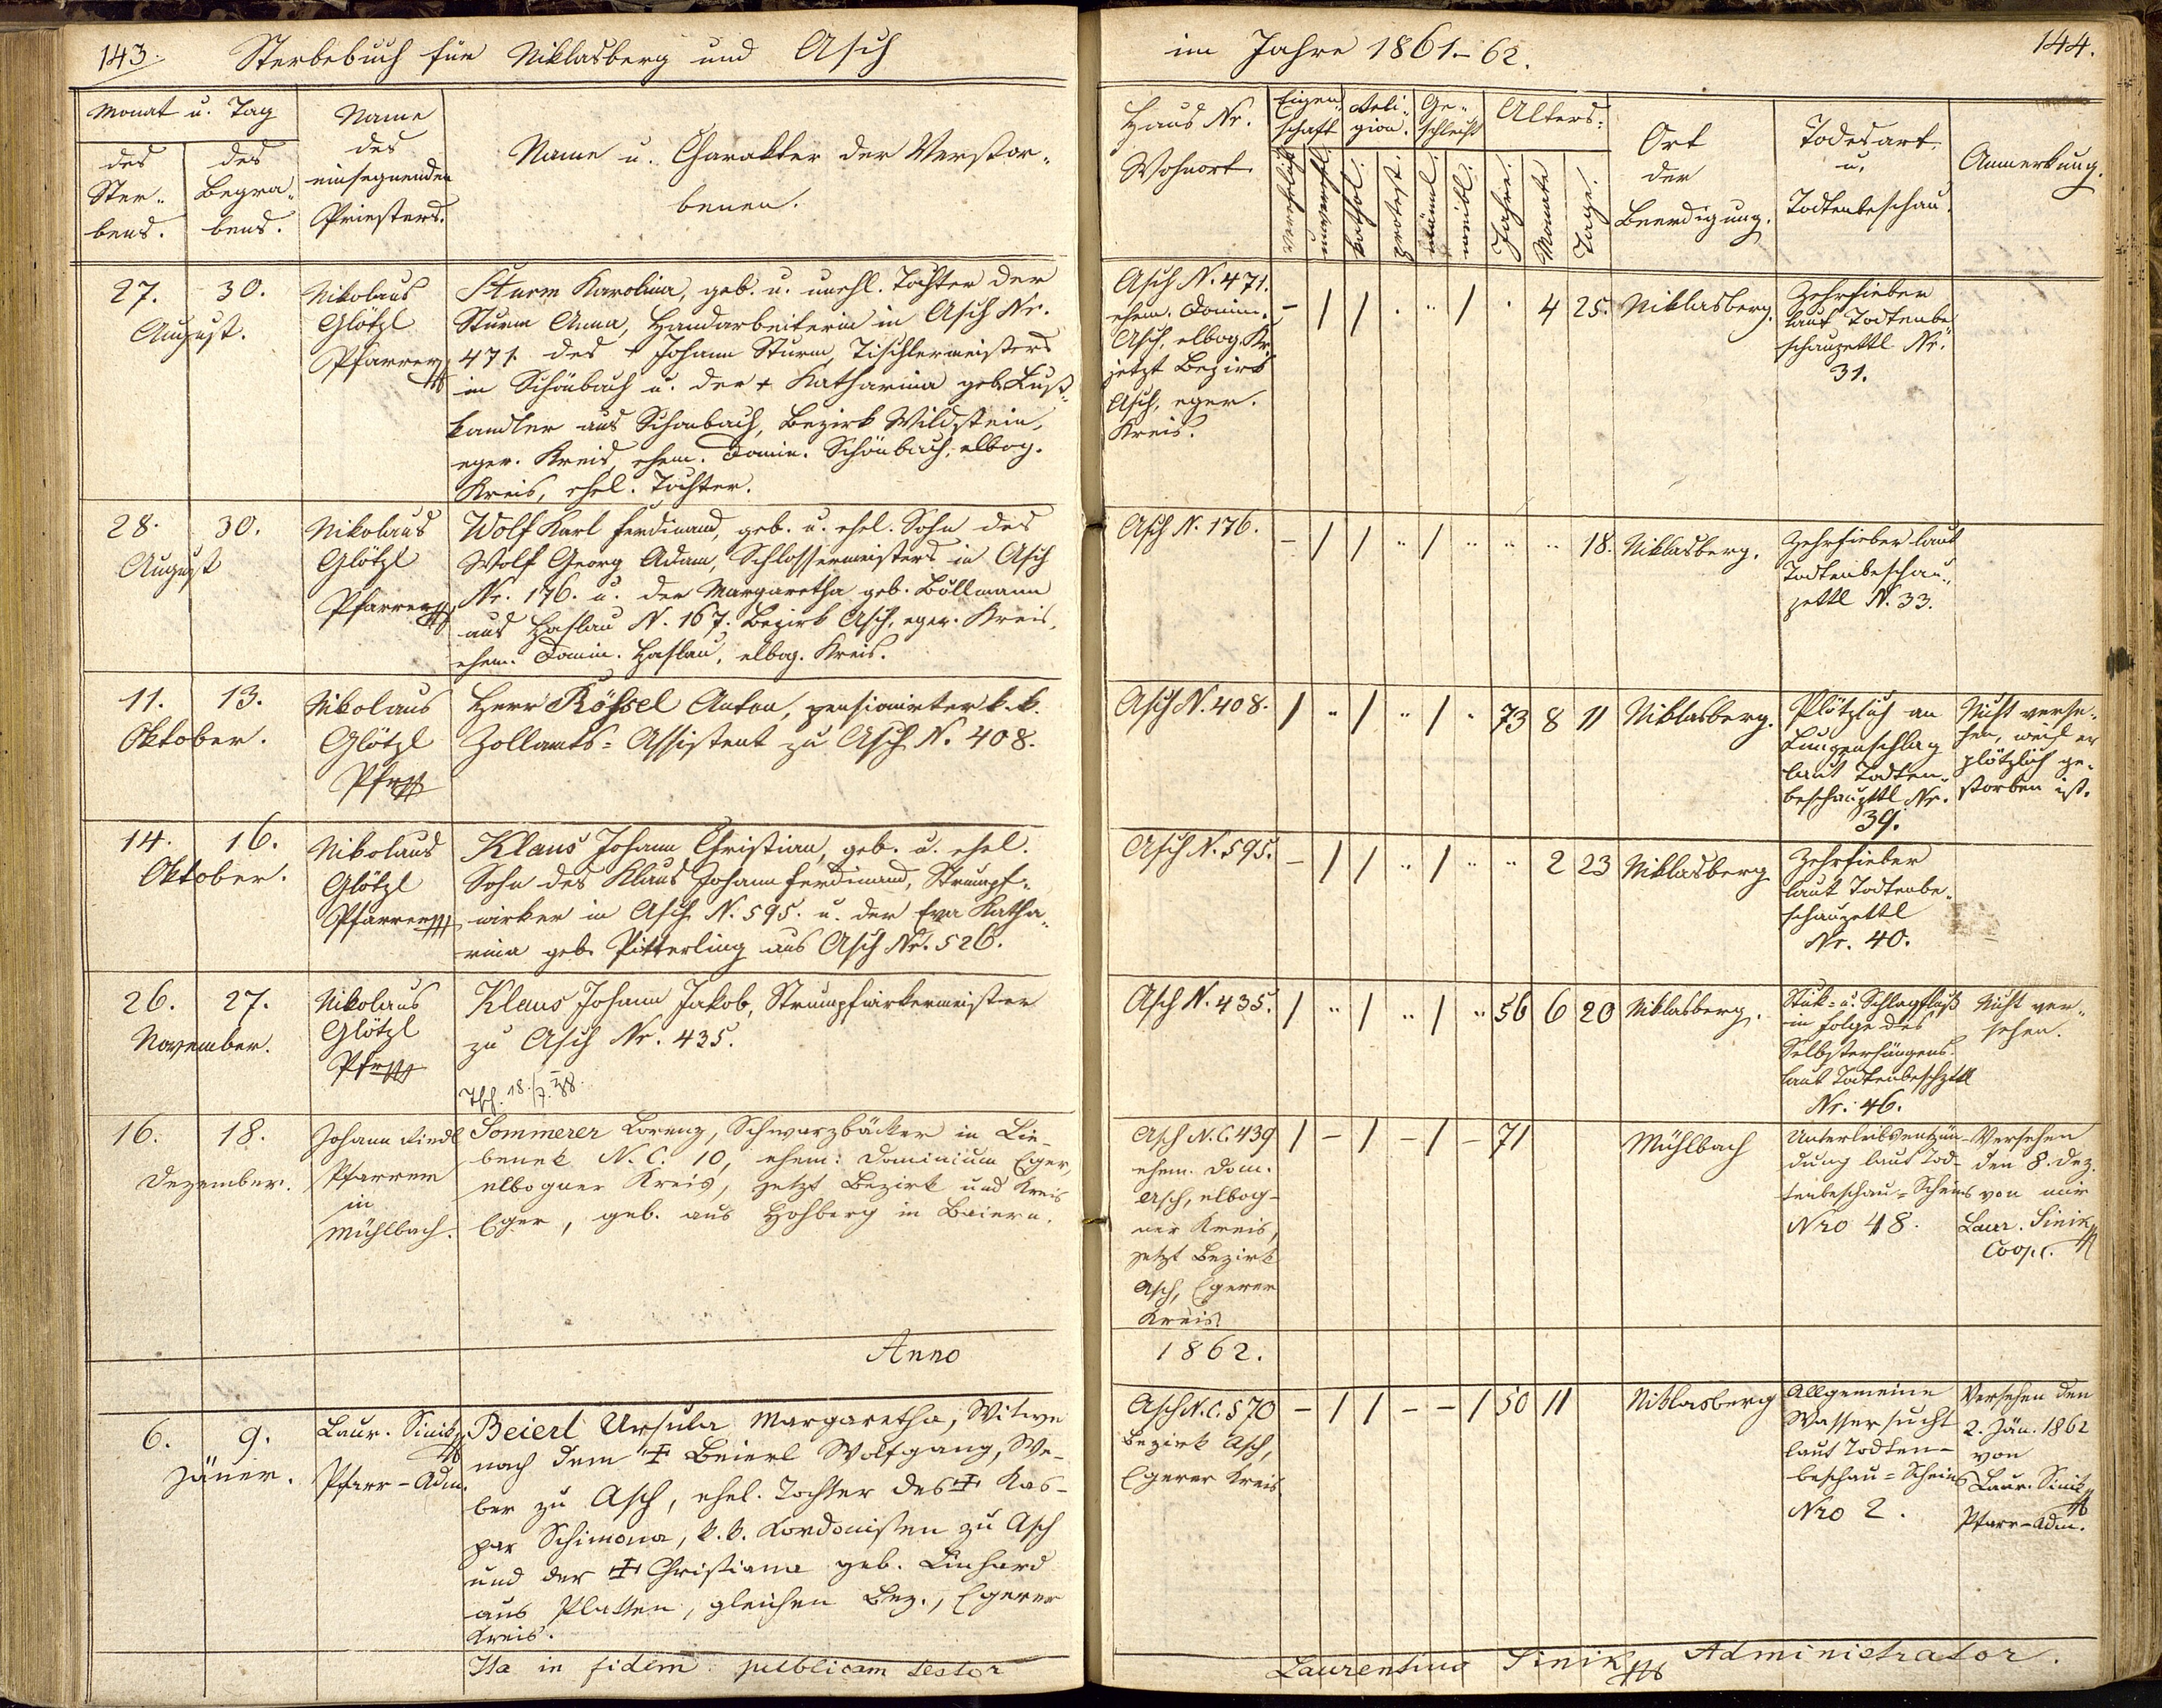 143. Sterbebuch für Niklasberg und Asch
Monat u. Tag
des Ster- bens.
des Begra- bens.
Name
des
einsegnenden
Priesters.
Name u. Charakter der Verstor-
benen.
27. 30.
August.
Nikolaus
Glötzl
Pfarrer
Sturm Karolina, geb. u. unehl. Tochter der
Sturm Anna, Handarbeiterin in Asch Nr.
471. des + Johann Sturm, Tischlermeisters
in Schönbach u. der + Katharina geb. Lust-
kandler aus Schönbach, Bezirk Wildstein,
eger. Kreis, ehem. Domin. Schönbach, elbog.
Kreis, ehel. Tochter.
28. 30.
August
Nikolaus
Glötzl
Pfarrer
Wolf Karl Ferdinand, geb. u. ehel. Sohn des
Wolf Georg Adam, Schlossermeisters in Asch
Nr. 176. u. der Margaretha geb. Böllmann
aus Haslau N. 167. Bezirk Asch, eger. Kreis,
ehem. Domin. Haslau, elbog. Kreis.
11. 13.
Oktober.
Nikolaus
Glötzl
Pfr
Herr Rössel Anton, pensionirter k. k.
Zollamts-Assistent zu Asch N. 408.
14. 16.
Oktober.
Nikolaus
Glötzl
Pfarrer
Klaus Johann Christian, geb. u. ehel.
Sohn des Klaus Johann Ferdinand, Strumpf-
wirker in Asch N. 595. u. der Eva Katha-
rina geb. Pitterling aus Asch Nr. 526.
26. 27.
November.
Nikolaus
Glötzl
Pfr
Klaus Johann Jakob, Strumpfwirkermeister
zu Asch Nr. 435.
16. 18.
Dezember.
Johann Riedl
Pfarrer
in
Mühlbach.
Sommerer Lorenz, Schwarzbäcker in Lie-
benek N. C. 10, ehem: Dominium Eger,
elbogner Kreis, jetzt Bezirk und Kreis
Eger, geb. aus Hohberg in Baiern.
Anno
6. 9.
Jäner.
Laur. Sinik
Pfarr-Adm.
Beierl Ursula Margaretha, Witwe
nach dem + Beierl Wolfgang, We-
ber zu Asch, ehel. Tochter des + Kas-
par Schimona, k. k. Kordonisten zu Asch
und der + Christiana geb. Linhard
aus Platten, gleichen Bez., Egerer
Kreis.
Ita in fidem publicam testor
im Jahre 1861-62. 144.
Haus Nr.
Wohnort
Eigen- schaft
Reli- gion.
Ge- schlecht
Alters:
Ort
der
Beerdigung.
Todesart
u.
Todtenbeschau.
Anmerkung.
verehlicht
unverehl.
kathol.
protest.
männl.
weibl.
Jahre.
Monate
Tage.
Asch N. 471.
ehem. Domin.
Asch, elbog. Kr.
jetzt Bezirk
Asch, eger.
Kreis.
- / / . .. / . 4 25. Niklasberg.
Zehrfieber
laut Todtenbe-
schauzettl Nr.
31.
Asch N. 176.
- / / .. / .. .. .. 18. Niklasberg.
Zehrfieber laut
Todtenbeschau-
zettl N. 33.
Asch N. 408.
/ .. / .. / .. 73 8 11 Niklasberg.
Plötzlich an
Lungenschlag
laut Todten-
beschauzttl Nr.
39.
Nicht verse-
hen, weil er
plötzlich ge-
storben ist.
Asch N. 595.
- / / .. / .. .. 2 23 Niklasberg
Zehrfieber
laut Todtenbe-
schauzettl
Nr. 40.
Asch N. 435.
/ .. / .. / .. 56 6 20 Niklasberg.
Stick- u. Schlagfluß
in Folge des
Selbsterhängens
laut Todtenbeschzttl
Nr. 46.
Nicht ver-
sehen.
Asch N. C. 439
ehem. Dom.
Asch, elbog-
ner Kreis,
jetzt Bezirk
Asch, Egerer
Kreis.
/ - / - / - 71 Mühlbach
Unterleibsentzün-
dung laut Tod-
tenbeschau-Schein
Nro 48.
Versehen
den 8. Dez.
von mir
Laur. Sinik
Coop.
1862.
Asch N. C. 570
Bezirk Asch,
Egerer Kreis.
- / / - - / 50 11 Niklasberg
Allgemeine
Wassersucht
laut Todten-
beschau-Schein
Nro 2.
Versehen den
2. Jän. 1862
von
Laur. Sinik
Pfarr-Adm.
Laurentius Sinik Administrator.